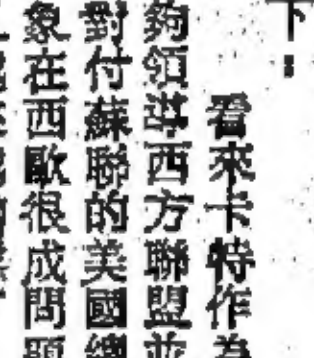 下：
看來卡特作為
夠領導西方聯盟並
對付蘇聯的美國總
象在西歐很成問題